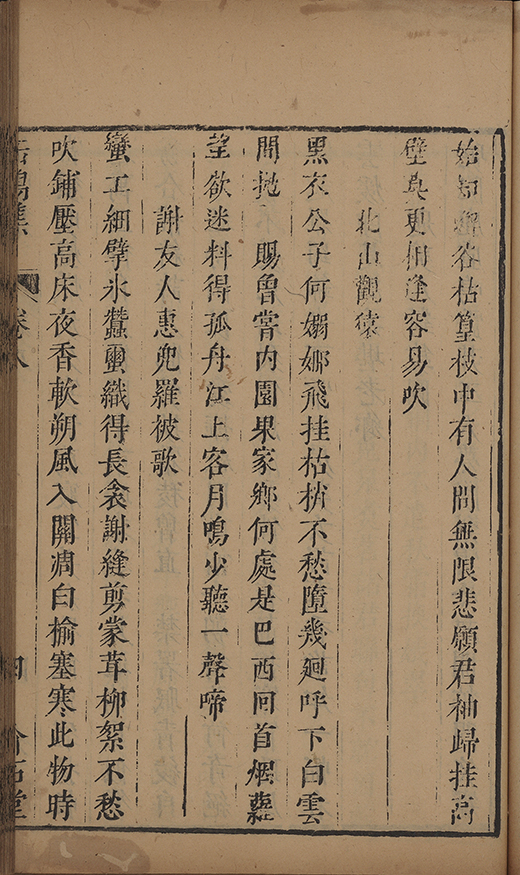 始知嶰谷枯篁枝中有人間無限悲願君袖歸挂高
壁莫更相逢容易吹
北山觀猿
黑衣公子何嫋娜飛挂枯梢不愁墮幾廻呼下白雲
間拋 賜魯嘗内園果家鄉何處是巴西回首烟蘿
望欲迷料得孤舟江上客月鳴少聽一聲啼
謝友人惠兜羅被歌
蠻工細擘氷蠶蠒織得長衾謝縫剪蒙茸柳絮不愁
吹鋪壓高床夜香軟朔風入關凋白榆塞寒此物時
卷八
四